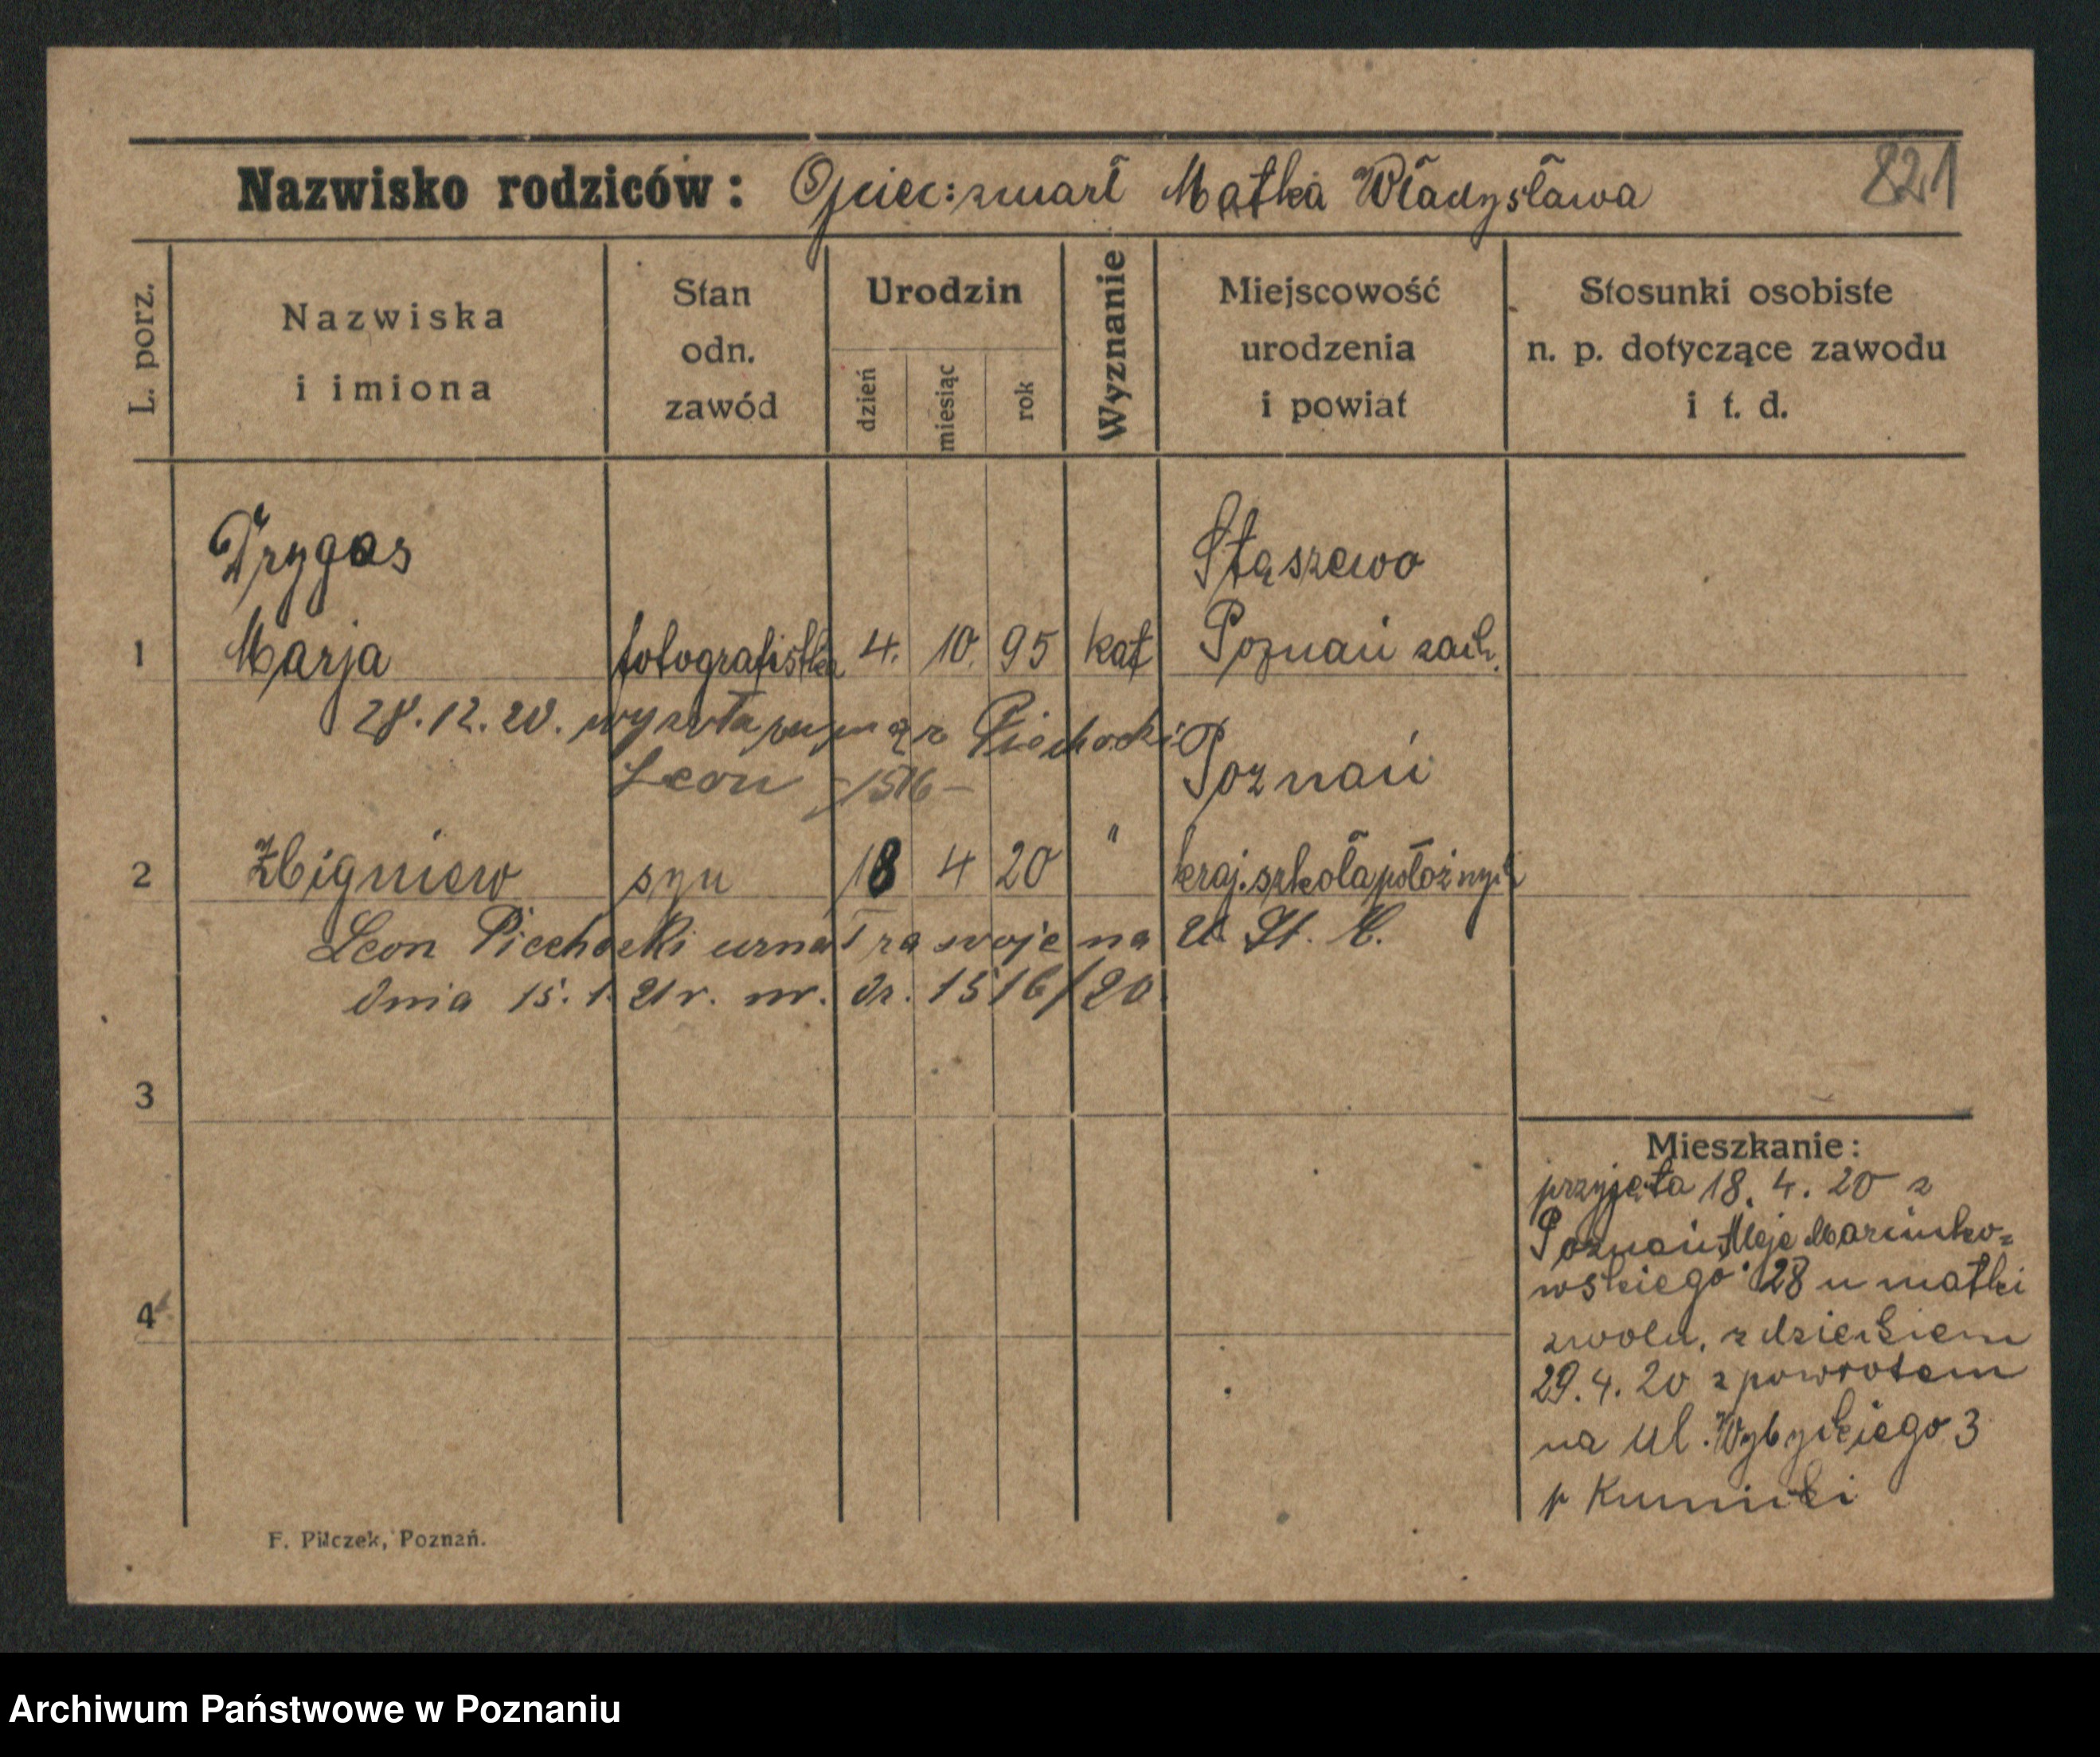 821
Nazwisko rodziców: Ojciec: zmarł Matka Władysława
L. porz.
Nazwiska
i imiona
Stan
odn.
zawód
Urodzin
dzień
miesiąc
rok
Wyznanie
Miejscowość
urodzenia
i powiat
Stosunki osobiste
n. p. dotyczące zawodu
i t. d.
Drygas
Stąszewo
1 Marja fotografistka 4. 10. 95 kat Poznań zach.
28.12.20. wyszła zamąz Piechocki
Leon -1516-
Poznań
2 Zbigniew syn 18 4 20 " kraj. szkoła położnych
Leon Piechocki uznał za swoje na U. St. C.
dnia 15. 1. 21 r. nr. dz. 1516/20.
3
4
Mieszkanie:
przyjęta 18. 4. 20 z
Poznań, Aleje Marcinko-
wskiego 28 u matki
zwoln. z dzieckiem
29. 4. 20 z powrotem
na ul. Wybyckiego 3
p
F. Pilczek, Poznań.
Archiwum Państwowe w Poznaniu